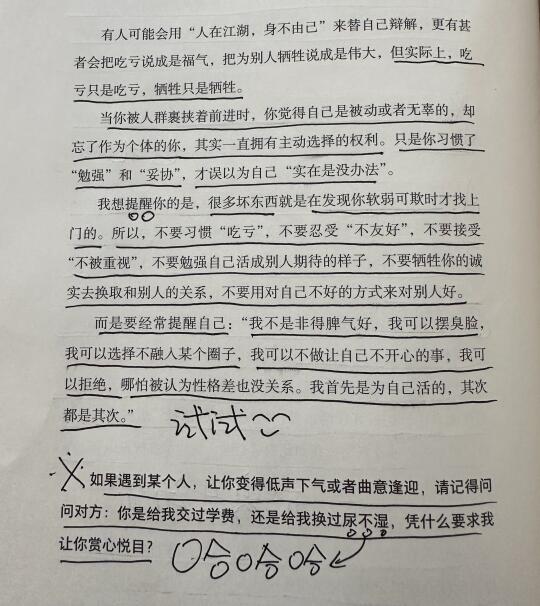 有人可能会用“人在江湖，身不由己”来替自己辩解，更有甚
者会把吃亏说成是福气，把为别人牺牲说成是伟大，但实际上，吃
亏只是吃亏，牺牲只是牺牲。
当你被人群裹挟着前进时，你觉得自己是被动或者无辜的，却
忘了作为个体的你，其实一直拥有主动选择的权利。只是你习惯了
“勉强”和“妥协”，才误以为自己“实在是没办法”。
我想提醒你的是，很多坏东西就是在发现你软弱可欺时才找上
门的。所以，不要习惯“吃亏”，不要忍受“不友好”，不要接受
“不被重视”，不要勉强自己活成别人期待的样子，不要牺牲你的诚
实去换取和别人的关系，不要用对自己不好的方式来对别人好。
而是要经常提醒自己：“我不是非得脾气好，我可以摆臭脸，
我可以选择不融入某个圈子，我可以不做让自己不开心的事，我可
以拒绝，哪怕被认为性格差也没关系。我首先是为自己活的，其次
都是其次。”
试试
如果遇到某个人，让你变得低声下气或者曲意逢迎，请记得问
问对方：你是给我交过学费，还是给我换过尿不湿，凭什么要求我
让你赏心悦目？
哈哈哈